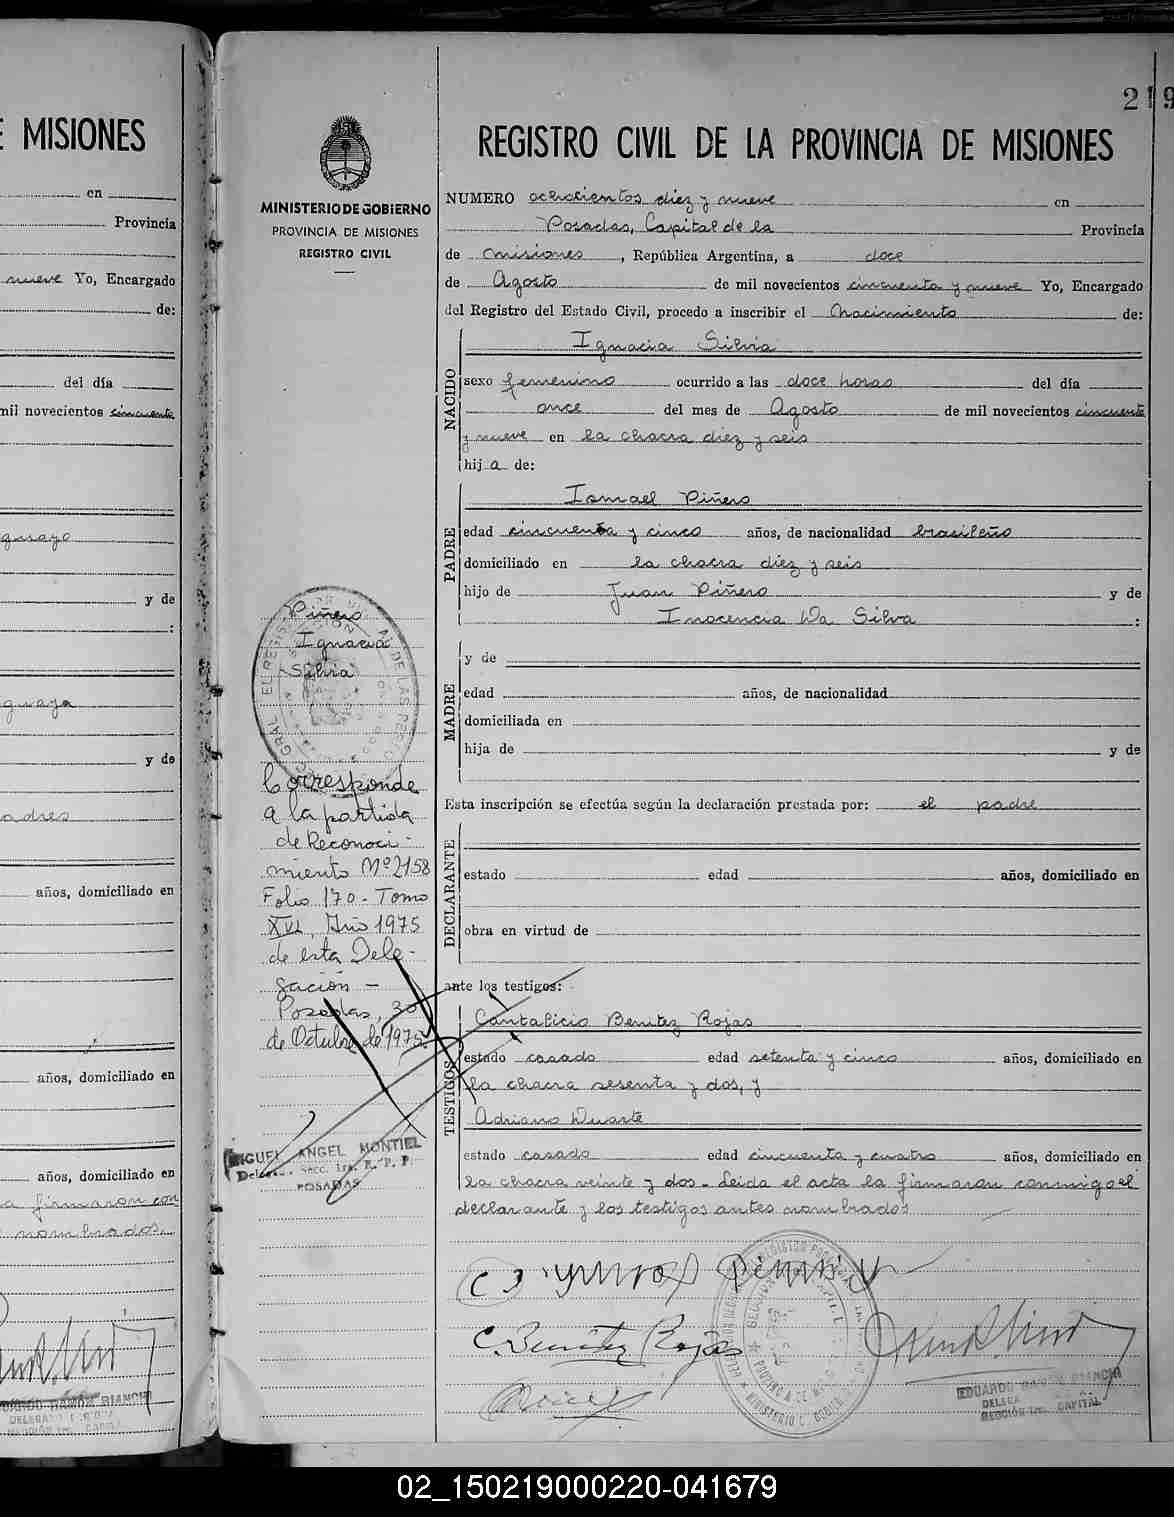 E MISIONES
en
Provincia
nueve Yo, Encargado
de:
del día
mil novecientos cincuenta
guayo
y de
:
guaya
y de
adres
años, domiciliado en
años, domiciliado en
años, domiciliado en
a firmaron con
nombrados.
EDUARDO RAMÓN BIANCHI
219
MINISTERIO DE GOBIERNO
PROVINCIA DE MISIONES
REGISTRO CIVIL
Piñero
Ignacia
Silvia
Corresponde
a la partida
de Reconoci-
miento Nº 2158
Folio 170 - Tomo
XVI, Año 1975
de esta Dele-
gación -
Posadas, 30
de Octubre de 1975.
MIGUEL ANGEL MONTIEL
POSADAS
REGISTRO CIVIL DE LA PROVINCIA DE MISIONES
NUMERO ochocientos diez y nueve en
Posadas, Capital de la Provincia
de Misiones, República Argentina, a doce
de Agosto de mil novecientos cincuenta y nueve Yo, Encargado
del Registro del Estado Civil, procedo a inscribir el Nacimiento de:
NACIDO
Ignacia Silvia
sexo femenino ocurrido a las doce horas del día
once del mes de Agosto de mil novecientos cincuenta
y nueve en la chacra diez y seis
hija de:
PADRE
Ismael Piñero
edad cincuenta y cinco años, de nacionalidad brasileño
domiciliado en la chacra diez y seis
hijo de Juan Piñero y de
Inocencia Da Silva :
MADRE
y de
edad años, de nacionalidad
domiciliada en
hija de y de
Esta inscripción se efectúa según la declaración prestada por: el padre
DECLARANTE
estado edad años, domiciliado en
obra en virtud de
ante los testigos:
TESTIGOS
Cantalicio Benitez Rojas
estado casado edad setenta y cinco años, domiciliado en
la chacra sesenta y dos, y
Adriano Duarte
estado casado edad cincuenta y cuatro años, domiciliado en
la chacra veinte y dos - Leida el acta la firmaron conmigo el
declarante y los testigos antes nombrados
C. Benítez Rojas
EDUARDO RAMÓN BIANCHI
CAPITAL
02_150219000220-041679